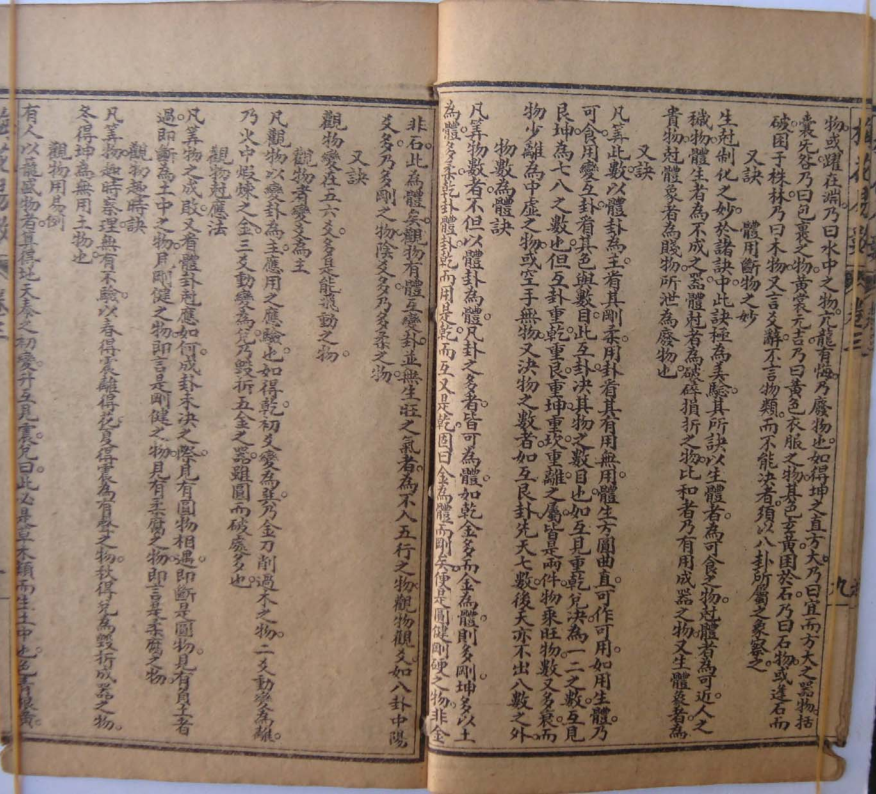 物或躍在淵乃曰水中之物亢龍有悔乃廢物也如得坤之直方大乃曰宜而方大之器物括
囊无咎乃曰包裹之物黃裳元吉乃曰黃色衣服之物其色玄黃困於石乃曰石物或逢石而
破困于株林乃曰木物又言爻辭不言物類而不能決者須以八卦所屬之象察之
又訣 體用斷物之妙
生尅制化之妙於諸訣中此訣極為美驗其所訣以生體者為可食之物尅體者為可近人之
穢物體生者為不成之器體尅者為破碎損折之物比和者乃有用成器之物又生體象者為
貴物尅體象者為賤物所泄為廢物也
又訣
凡筭此數以體卦為主看其剛柔用卦看其有用無用體生方圓曲直可作可用如用生體乃
可食用變互卦看其色與數目此互卦決其物之數目也如互見重乾兌決為一二之數互見
艮坤為七八之數也但互卦重乾重艮重坤重坎重離之屬皆是兩件物乘旺物數又多衰而
物少離為中虛之物或空手無物又決物之數者如互艮卦先天七數後天亦不出八數之外
物數為體訣
凡筭物數者不但以體卦為體凡卦之多者皆可為體如乾金多而金為體則多剛坤多以土
為體多柔乾卦體卦乾而用是乾而互又是乾固曰金為體而剛矣便是圓健剛硬之物非金
非石此為體矣觀物有體互變卦並無生旺之氣者為不入五行之物觀物觀爻如八卦中陽
爻多乃多剛之物陰爻多乃多柔之物
又訣
觀物變在五六爻多是能飛動之物
觀物者變爻為主
凡觀物以變卦為主應用之應驗也如得乾初爻變為巽乃金刀削過木之物二爻動變為離
乃火中煅煉之金三爻動變為兌乃毀折五金之器雖圓而破處多也
觀物尅應法
凡筭物之成敗又看體卦尅應如何成卦未決之際見有圓物相遇即斷是圓物見有負土者
過即斷為土中之物見剛健之物即言是剛健之物見有柔腐之物即言是柔腐之物
觀物趣時訣
凡筭物趣時察理無有不驗以春得震離得花夏得震為有聲之物秋得兌為毀折成器之物
冬得坤為無用土物也
觀物用易例
有人以籠盛物者筭得地天泰之初變升互見震兌曰此必是草木類而生土中也色青根黃